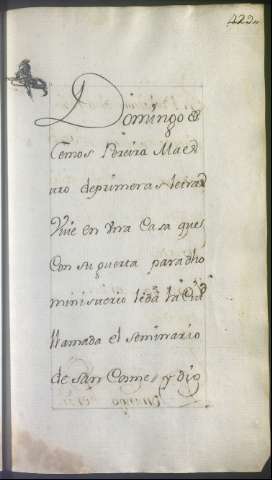 422
Domingo de
Cemos Pereira Maes
tro de primeras letras
Vive en una Casa que
Con su puerta para dho
ministerio le dà la Ciud
llamada el seminario
de san Cosme, y dio